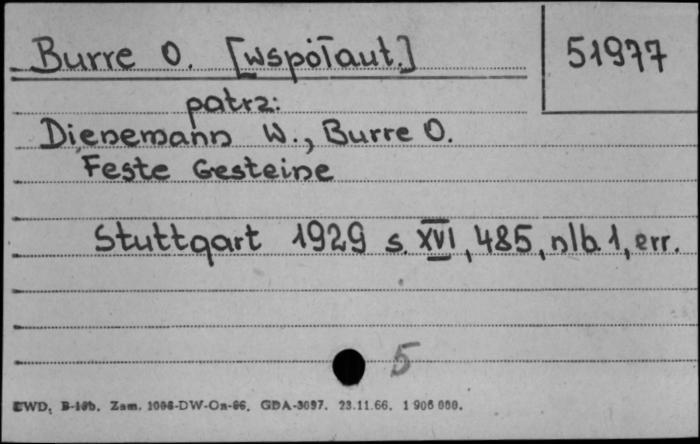 Burre O. [współaut.]
51977
patrz:
Dienemann W., Burre O.
Feste Gesteine
Stuttgart 1929 s. XVI, 485, nlb. 1, err.
5
CWD, B-19b. Zam. 1006-DW-Oa-66. GDA-3097. 23.11.66. 1 906 000.